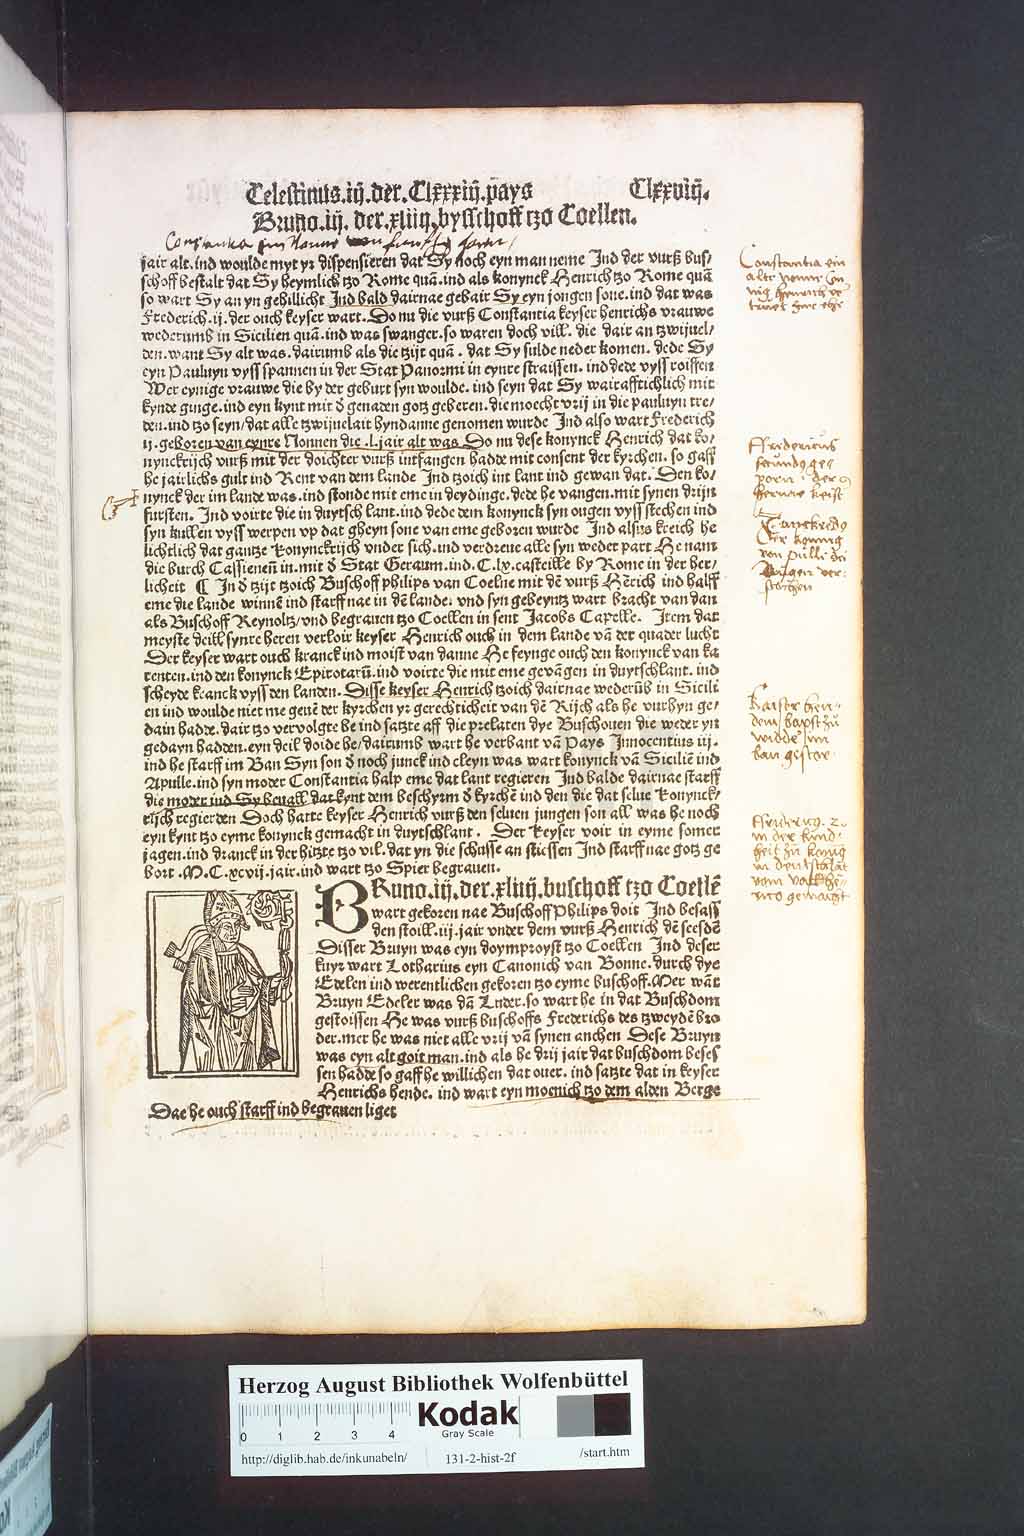 Celestinus.iij.der.Clxxxiij.pays Clxxviij.
Bruno.iij.der.xliiij.bysschoff tzo Coellen.
jair alt.ind woulde myt yr dispensieren dat Sy noch eyn man neme Ind der vurß bus/
schoff bestalt dat Sy heymlich tzo Rome quā.ind als konynck Henrich tzo Rome quā
so wart Sy an yn gehillicht Ind bald dairnae gebair Sy eyn jongen sone.ind dat was
Frederich.ij.der ouch keyser wart. Do nu die vurß Constantia keyser henrichs vrauwe
wederumb in Sicilien quā.ind was swanger.so waren doch vill. die dair an tzwijuel/
den.want Sy alt was.dairumb als die tzijt quā. dat Sy sulde neder komen. dede Sy
eyn Pauluyn vyss spannen in der Stat Panormi in eynre straissen. ind dede vyss roiffen
Wer eynige vrauwe die by der geburt syn woulde. ind seyn dat Sy wairafftichlich mit
kynde ginge.ind eyn kynt mit d genaden gotz geberen.die moecht vrij in die pauluyn tre/
den.ind tzo seyn/dat alle tzwijuelait hyndanne genomen wurde Ind also wart Frederich
ij.geboren van eynre Nonnen die .l.jair alt was Do nu dese konynck Henrich dat ko/
nynckrijch vurß mit der doichter vurß intfangen hadde mit consent der kyrchen. so gaff
he jairlichs gult ind Rent van dem lande Ind tzoich int lant ind gewan dat. Den ko/
nynck der im lande was.ind stonde mit eme in deydinge.dede he vangen.mit synen drijn
fursten. Ind voirte die in duytsch lant.ind dede dem konynck syn ougen vyss stechen ind
syn kullen vyss werpen vp dat gheyn sone van eme geboren wurde Ind alsus kreich he
lichtlich dat gantze Konynckrijch vnder sich.ind verdreue alle syn weder part He nam
die burch Cassienen in.mit d Stat Geraum.ind.C.lx.casteille by Rome in der her/
licheit ¶ In d tzijt tzoich Buschoff philips van Coelne mit dē vurß Hērich ind halff
eme die lande winnē ind starff nae in dē lande. vnd syn gebeyntz wart bracht van dan
als Buschoff Reynoltz/vnd begrauen tzo Coellen in sent Jacobs Capelle. Item dat
meyste deill synre heren verloir keyser Henrich ouch in dem lande vā der quader lucht
Der keyser wart ouch kranck ind moist van danne He feynge ouch den konynck van ka
renten.ind den konynck Epirotarū.ind voirte die mit eme gevāgen in duytschlant. ind
scheyde kranck vyss den landen. Disse keyser Henrich tzoich dairnae wederūb in Sicili
en ind woulde niet me geuē der kyrchen yr gerechticheit van dē Rijch als he vurhyn ge/
dain hadde.dair tzo vervolgte he ind satzte aff die prelaten dye Buschouen die weder yn
gedayn hadden.eyn deil doide he/dairumb wart he verbant vā Pays Innocentius iij.
ind he starff im Ban Syn son d noch junck ind cleyn was wart konynck vā Sicilie ind
Apulle.ind syn moder Constantia halp eme dat lant regieren Ind balde dairnae starff
die moder ind Sy beuall dat kynt dem beschyrm d kyrchē ind den die dat selue Konynck/
rijch regierden Doch hatte keyser Henrich vurß den seluen jungen son all was he noch
eyn kynt tzo eyme konynck gemacht in duytschlant. Der keyser voir in eyme somer
jagen.ind dranck in der hitzte tzo vil. dat yn die schusse an stiessen Ind starff nae gotz ge
bort .M.C.xcvij.jair.ind wart tzo Spier begrauen.
BRuno.iij.der.xliiij.buschoff tzo Coellē
wart gekoren nae Buschoff Philips doit Ind besass
den stoill.iij.jair vnder dem vurß Henrich dē seesdē
Disser Bruyn was eyn doymproyst tzo Coellen Ind deser
kuyr wart Lotharius eyn Canonich van Bonne.durch dye
Edelen ind werentlichen gekoren tzo eyme buschoff.Mer wāt
Bruyn Edeler was dā Luder.so wart he in dat Buschdom
gestoissen He was vurß buschoffs Frederichs des tzweydē bro
der.mer he was niet alle vrij vā synen anchen Dese Bruyn
was eyn alt goit man.ind als he drij jair dat buschdom beses
sen hadde so gaff he willichen dat ouer. ind satzte dat in keyser
Henrichs hende. ind wart eyn moenich tzo dem alden Berge
Dae he ouch starff ind begrauen liget
Constantia ein
alte nonne
Fredericus
secundus ge
porn
Tancredus
der konnig
von pulle die
augen ver
stochen
Kaiser hen
dem bapst zu
widde im
ban gestor
Friderich. 2.
in der kind
heit zu konig
in deutschlāt
gemacht
Herzog August Bibliothek Wolfenbüttel
0 1 2 3 4
Kodak
Gray Scale
http://diglib.hab.de/inkunabeln/ 131-2-hist-2f /start.htm